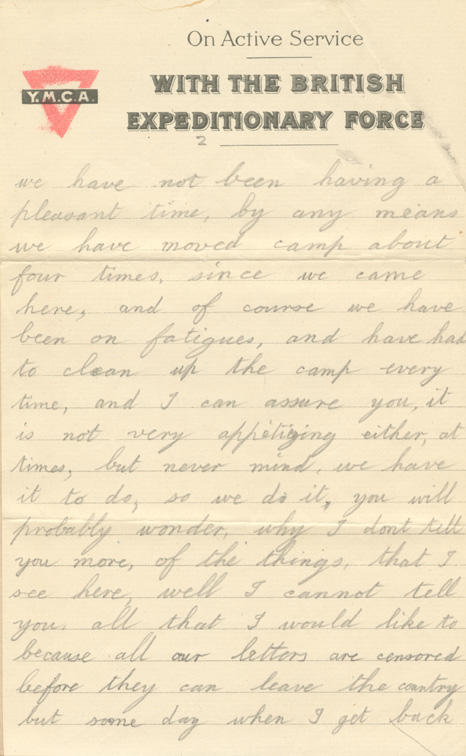 On Active Service
Y.M.C.A.
WITH THE BRITISH
EXPEDITIONARY FORCE
2
we have not been having a
pleasant time, by any means
we have moved camp about
four times, since we came
here, and of course we have
been on fatigues, and have had
to clean up the camp every
time, and I can assure you, it
is not very appetiging either, at
times, but never mind, we have
it to do, so we do it, you will
probably wonder, why I dont tell
you more, of the things, that I
see here, well I cannot tell
you all that I would like to
because all our letters are censored
before they can leave the country
but some day when I get back